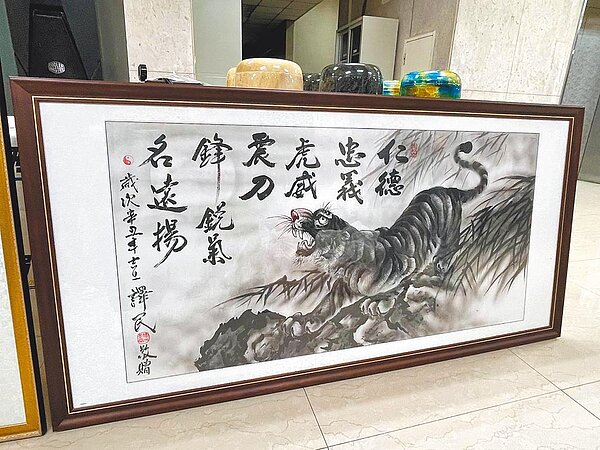 仁德
忠義
虎威
震刀
鋒銳氣
名遠揚
歲次辛丑年吉旦 譯民 敬贈